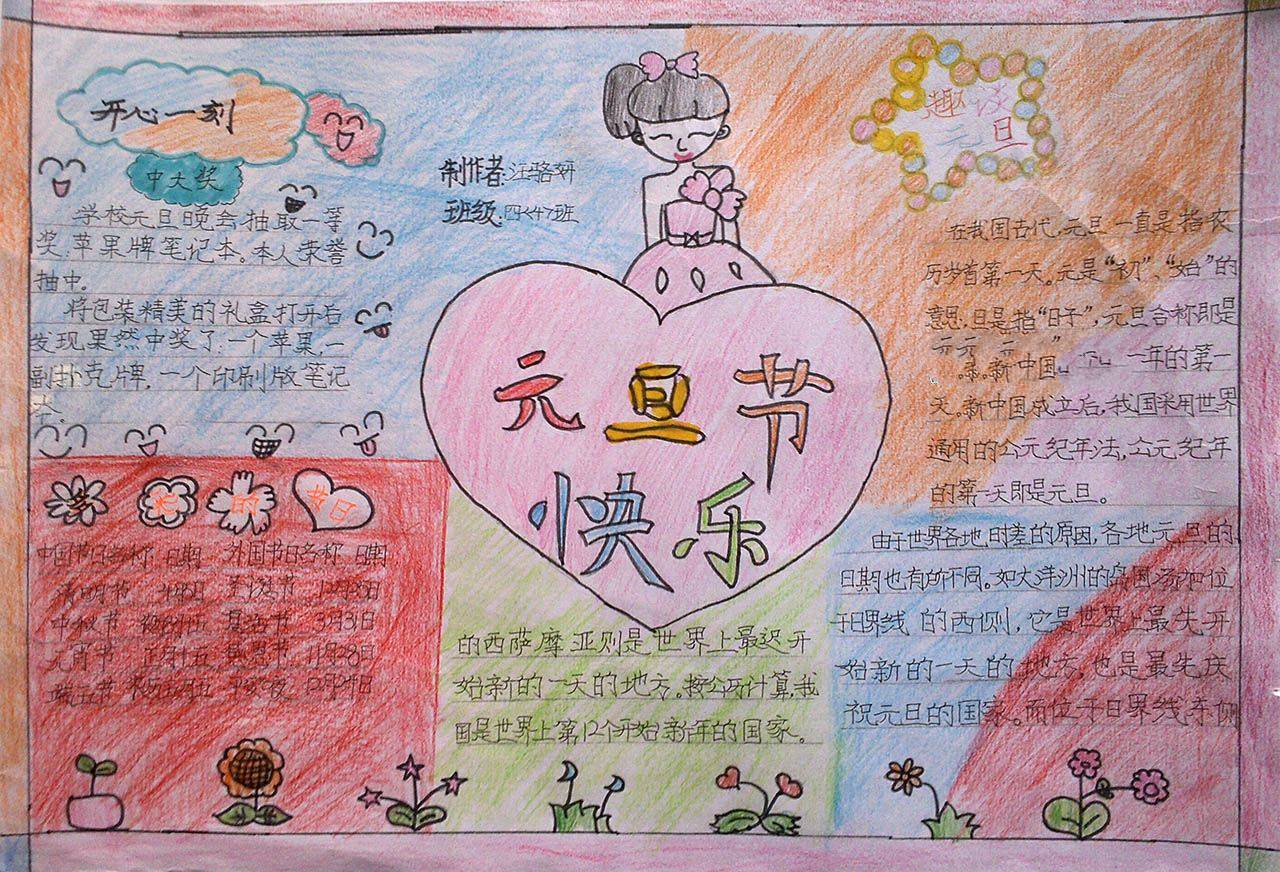 开心一刻
中大奖
学校元旦晚会抽取一等
奖:苹果牌笔记本。本人荣誉
抽中。
将包装精美的礼盒打开后
发现果然中奖了:一个苹果,一
副扑克牌,一个印刷版笔记
本。
制作者:汪骆妍
班级:四〈4〉班
元旦节
快乐
趣谈
元旦
在我国古代,元旦一直是指农
历岁首第一天。元是“初”、“始”的
意思,旦是指“日子”,元旦合称即是
新中国 一年的第一
天。新中国成立后,我国采用世界
通用的公元纪年法,公元纪年
的第一天即是元旦。
由于世界各地时差的原因,各地元旦的
日期也有所不同。如大洋洲的岛国汤加位
于日界线的西侧,它是世界上最先开
始新的一天的地方,也是最先庆
祝元旦的国家。而位于日界线东侧
的西萨摩亚则是世界上最迟开
始新的一天的地方。按公历计算,我
国是世界上第12个开始新年的国家。
的节日
中国节日名称 日期 外国节日名称 日期
清明节 圣诞节 12月25日
中秋节 复活节 3月31日
元宵节 正月十五 感恩节 11月28日
端五节 平安夜 12月24日